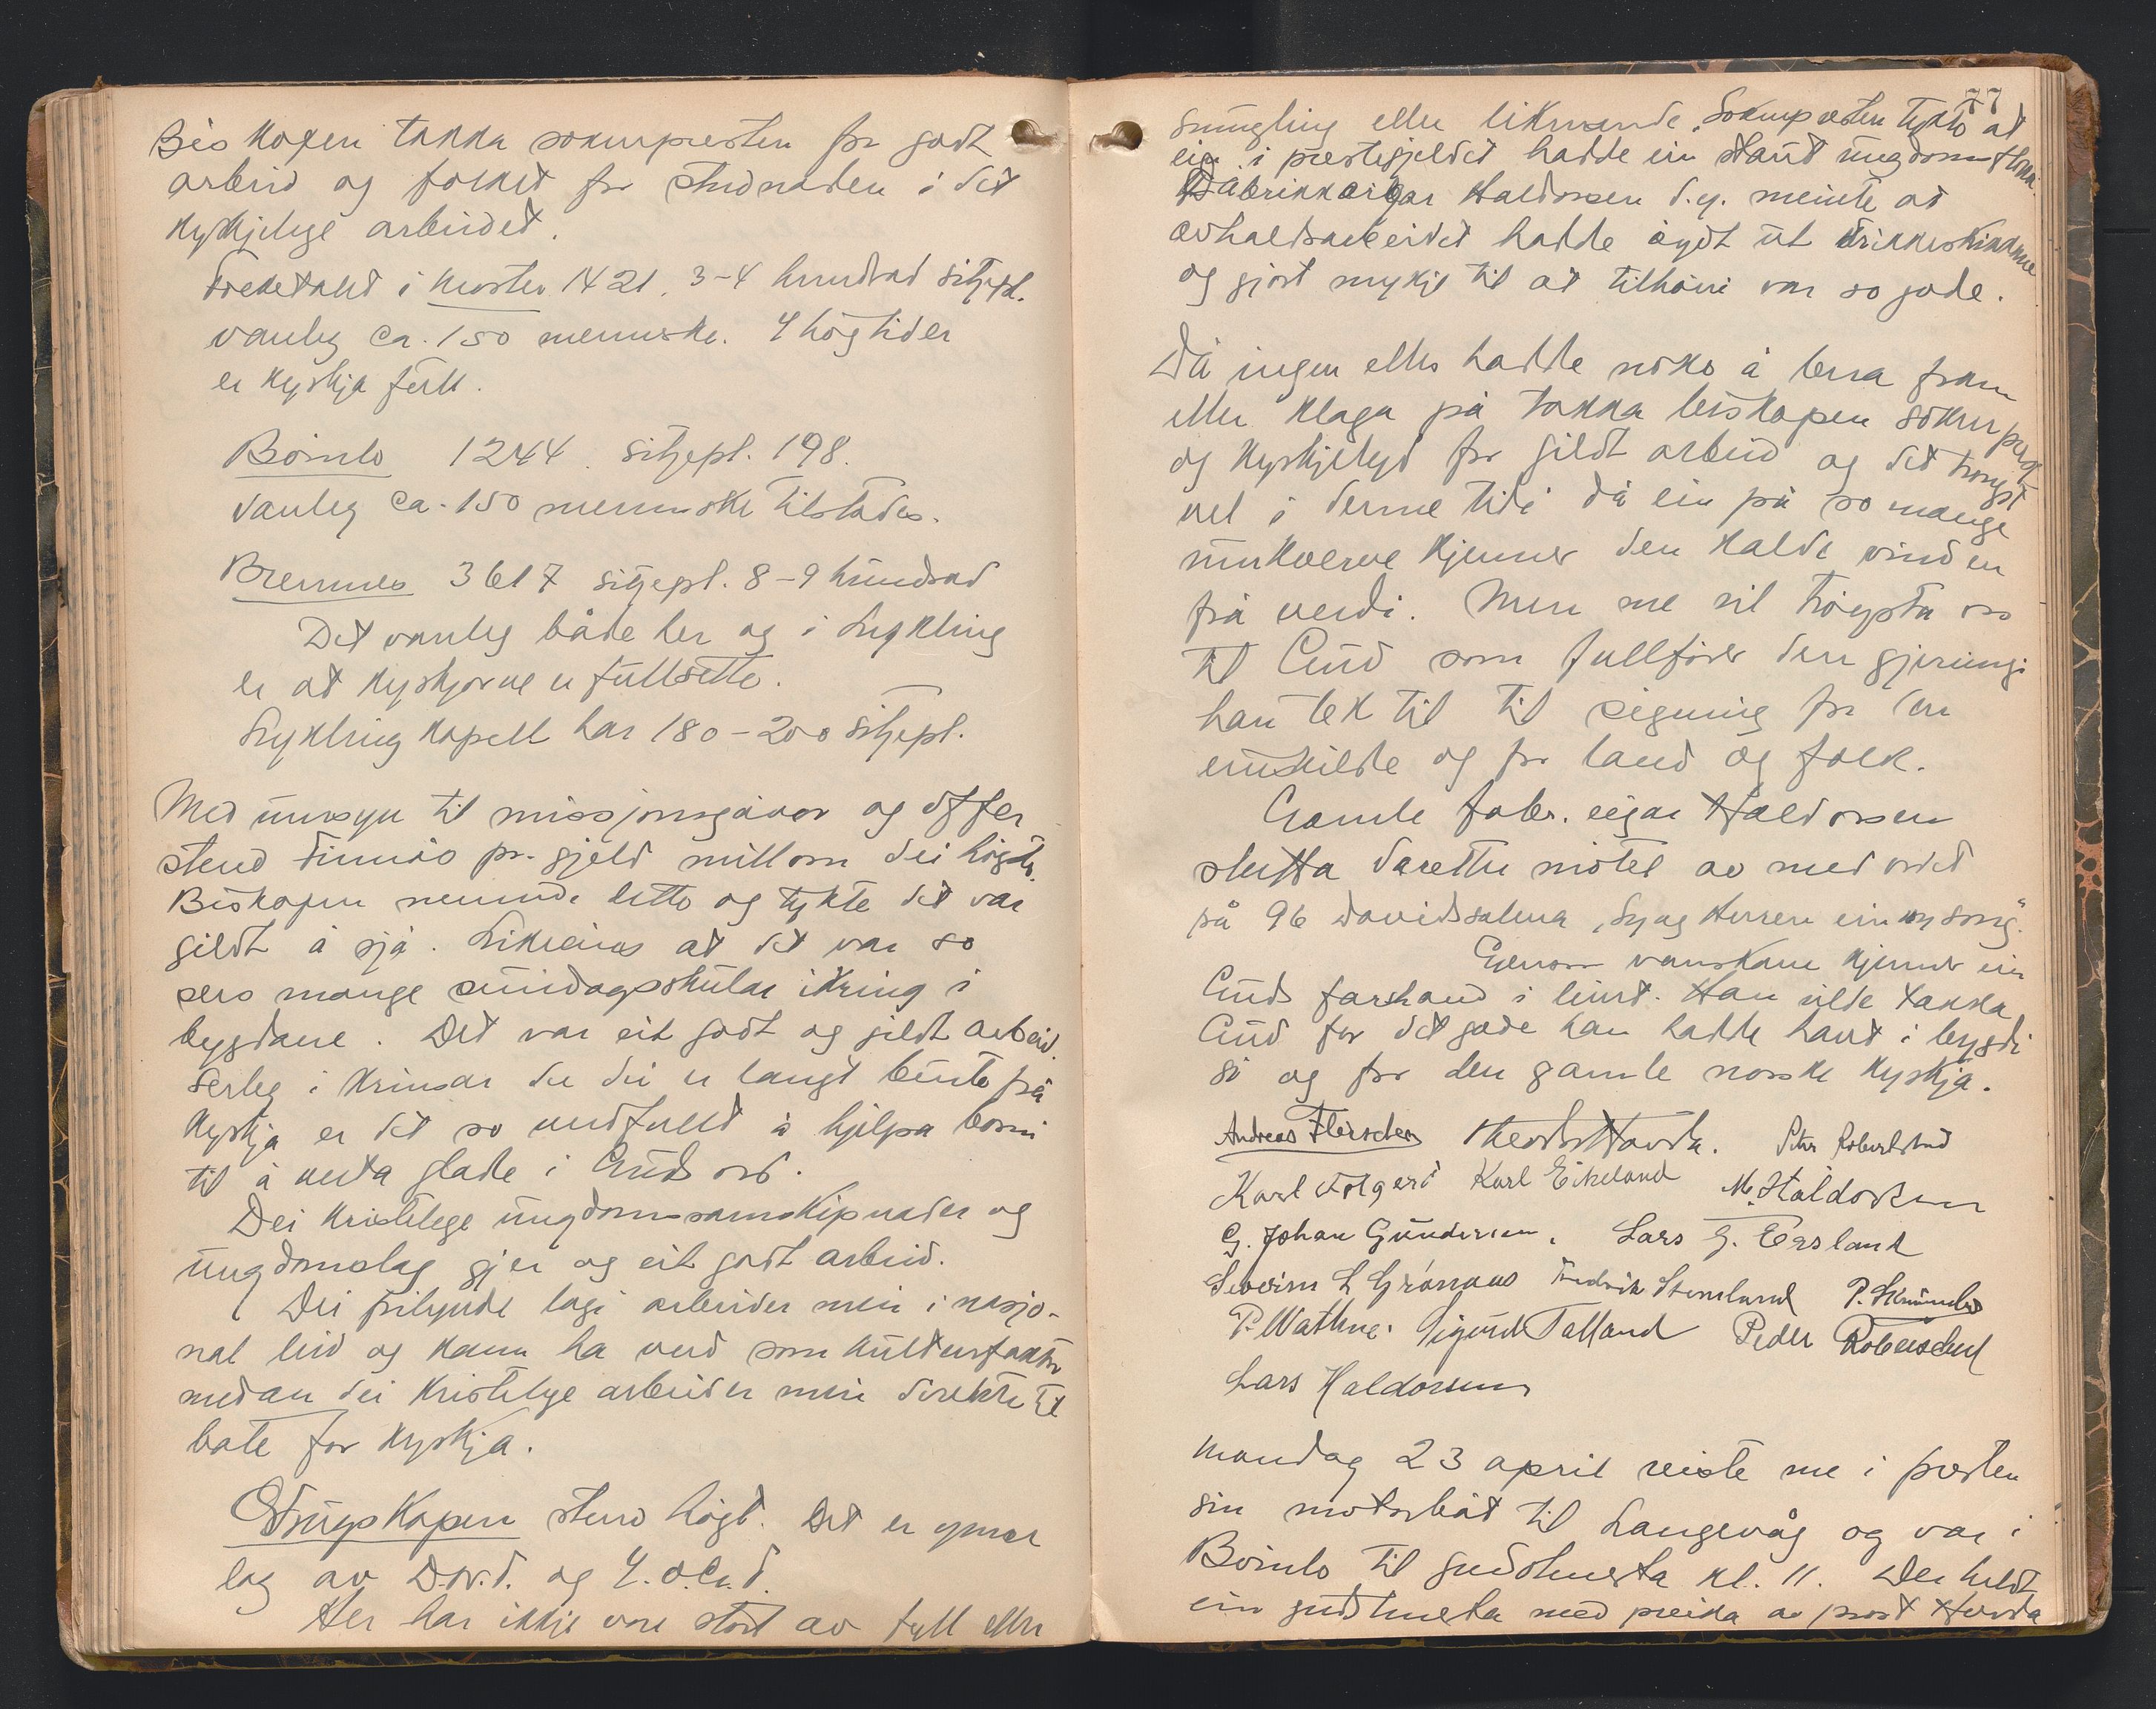 Biskopen takka soknepresten for godt
arbeid og folket for studnaden i det
kyrkjelege arbeidet.
Folketalet i Moster 1421. 3-4 hundrad sitjepl.
vanleg ca. 150 menneske. I høgtider
er kyrkja full.
Bömlo 1244. sitjepl. 198.
Vanleg ca. 150 menneske tilstades.
Bremnes 3617 sitjepl. 8-9 hundrad
Det vanleg både her og i Lykling
er at kyrkjorne er fullsette.
Lykling kapell har 180-200 sitjepl.
Med umsyn til missjonsgåvor og offer
stend Finnås pr. gjeld millom dei högste.
Biskopen nemnde dette og tykte det var
gildt å sjå. Likeeins at det var so
pers mange sundagsskular ikring i
bygdane. Det var eit godt og gildt arbeid.
Serleg i krinsar der dei er langt burte frå
kyrkja er det so verdfullt å hjelpa borni
til å verta glade i Guds ord.
Dei kristelege ungdomssamskipnader og
ungdomslag gjer og eit godt arbeid.
Dei frilynde lagi arbeider meir i nasjo-
nal leid og kann ha verd som kulturfaktor
medan dei kristelege arbeider meir direkte til
bate for kyrkja.
Edruskapen stend högt. Det er ymse
lag av D.N.T. og I.O.G.T.
Her har ikkje vore stort av fyll eller
77
smugling eller liknande. Soknepresten tykte at
ein i prestegjeldet hadde ein staut ungdomsflokk.
Fabrikkeigar Haldorsen d.y. meinte at
avhaldsarbeidet hadde øydt ut drikkeskikkane
og gjort mykje til at tilhøvi var so gode.
Då ingen elles hadde noko å bera fram
eller klaga på takka biskopen sokneprest
og kyrkjelyd for gildt arbeid og det trengst
vel i denne tidi då ein på so mange
umkverve kjenner den kalde vinden
frå verdi. Men me vil trøysta oss
til Gud som fullfører den gjerningi
han tek til til signing for den
einskilde og for land og folk.
Gamle fabr. eigar Haldorsen
slutta deretter mötet av med ordet
frå 96 Davidssalma „Syng Herren ein ny song".
Gjenom vanskane kjenner ein
Guds farshand i livet. Han vilde takka
Gud for det gode han hadde havt i bygdi
si og for den gamle norske kyrkja.
Andreas Fleischer Theodor Hovda. Peter Robertstad
Karl Folgerö Karl Eikeland M. Haldorsen
G. Johan Gundersen. Lars G. Eersland
Severin L Grönaas Fredrik Stemland P.
P. Wathne. Sigurd Talland Peder
Lars Haldorsen
Mandag 23 april reiste me i presten
sin motorbåt til Langevåg og var i
Bömlo til gudstenesta kl. 11. Der heldt
ein gudstenesta med preika av prost Hovda